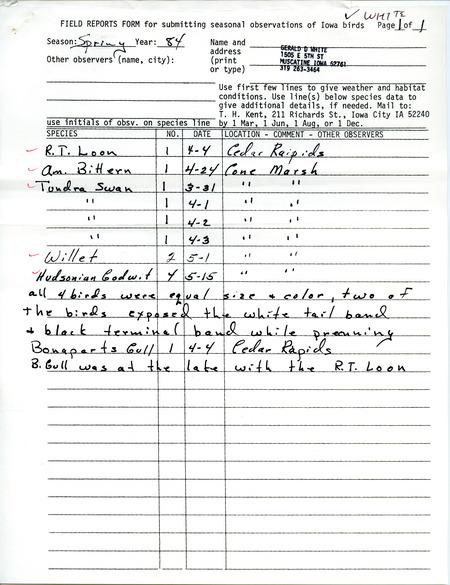 ✓ WHITE
FIELD REPORTS FORM for submitting seasonal observations of Iowa birds Page 1 of 1
Season: Spring Year: 84 Name and address (print or type)
GERALD D WHITE
1505 E 5TH ST
MUSCATINE IOWA 52761
319 263-3464
Other observers (name, city):
Use first few lines to give weather and habitat
conditions. Use line(s) below species data to
give additional details, if needed. Mail to:
T. H. Kent, 211 Richards St., Iowa City IA 52240
use initials of obsv. on species line by 1 Mar, 1 Jun, 1 Aug, or 1 Dec.
SPECIES NO. DATE LOCATION - COMMENT - OTHER OBSERVERS
R.T. Loon 1 4-4 Cedar Raipids
Am. Bittern 1 4-24 Cone Marsh
Tundra Swan 1 3-31 " "
" 1 4-1 " "
" 1 4-2 " "
" 1 4-3 " "
Willet 2 5-1 " "
Hudsonian Godwit 4 5-15 " "
all 4 birds were equal size & color, two of
the birds exposed the white tail band
& black terminal band while preening
Bonaparts Gull 1 4-4 Cedar Rapids
B. Gull was at the lake with the R.T. Loon